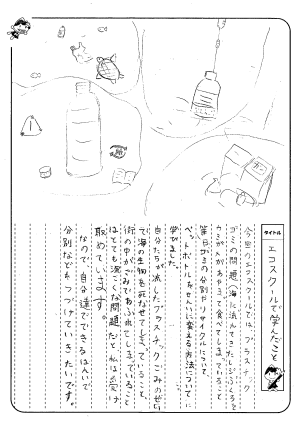 タイトル
エコスクールで学んだこと
今回のエコスクールでは、プラスチック
ゴミの問題(海に流れてきたレジぶくろを
ウミガメがあやまって食べてしまっていること
等)日ごろの分別やリサイクルについて、
ペットボトルをせんいに変える方法についてに
学びました。
自分たちが流したプラスチックごみのせい
で海の生物を死なせてしまっていること、
街の中がごみであふれてしまっていること
はとても深こくな問題だと私は受け
取めています。
なので、自分達でできるはんいで
分別などもつづけていきたいです。